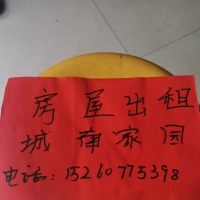 房屋出租
城南家园
电话:15260775398